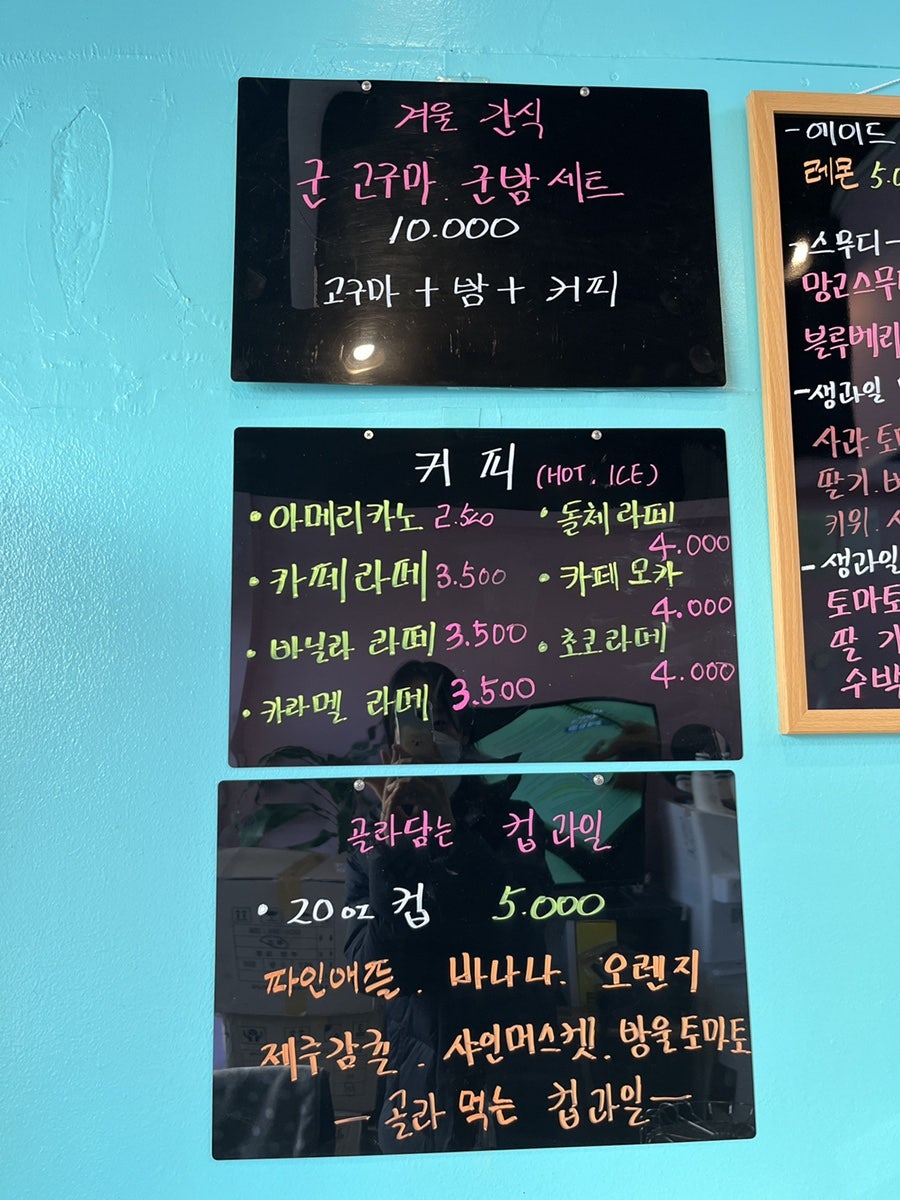 겨울 간식
군 고구마. 군밤 세트
10.000
고구마 + 밤 + 커피
커피 (HOT. ICE)
• 아메리카노 2.500
• 카페라떼 3.500
• 바닐라 라떼 3.500
• 카라멜 라떼 3.500
• 돌체라떼
4.000
• 카페모카
4.000
• 초코라떼
4.000
골라담는 컵과일
• 20oz 컵 5.000
파인애플. 바나나. 오렌지
제주감귤. 샤인머스켓. 방울토마토
- 골라 먹는 컵과일 -
- 에이드
레몬 5.0
- 스무디 -
망고스무
블루베리
- 생과일
사과. 토
딸기. 바
키위.
- 생과일
토마토
딸기
수박